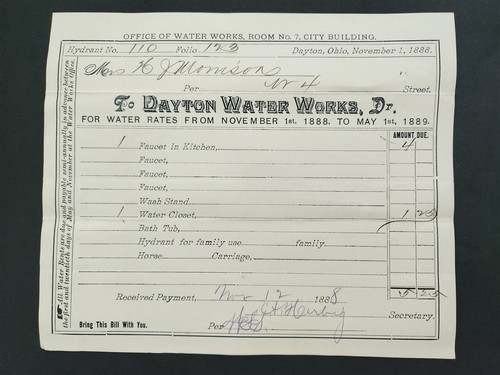 OFFICE OF WATER WORKS, ROOM No. 7, CITY BUILDING.
Hydrant No. 110 Folio 123 Dayton, Ohio, November 1, 1888.
Mrs H J Morrison
Per W 4 Street.
To DAYTON WATER WORKS, Dr.
FOR WATER RATES FROM NOVEMBER 1st. 1888. TO MAY 1st, 1889.
AMOUNT DUE.
1 Faucet in Kitchen, 4
Faucet,
Faucet,
Faucet,
Wash Stand
1 Water Closet, 1 25
Bath Tub,
Hydrant for family use family.
Horse Carriage,
5 25
Received Payment, Nov 12 1888
Secretary.
Bring This Bill With You. Per
All Water Rents are due and payable semi-annually, in advance between
the first and twentieth days of May and November at the Water Works Office.